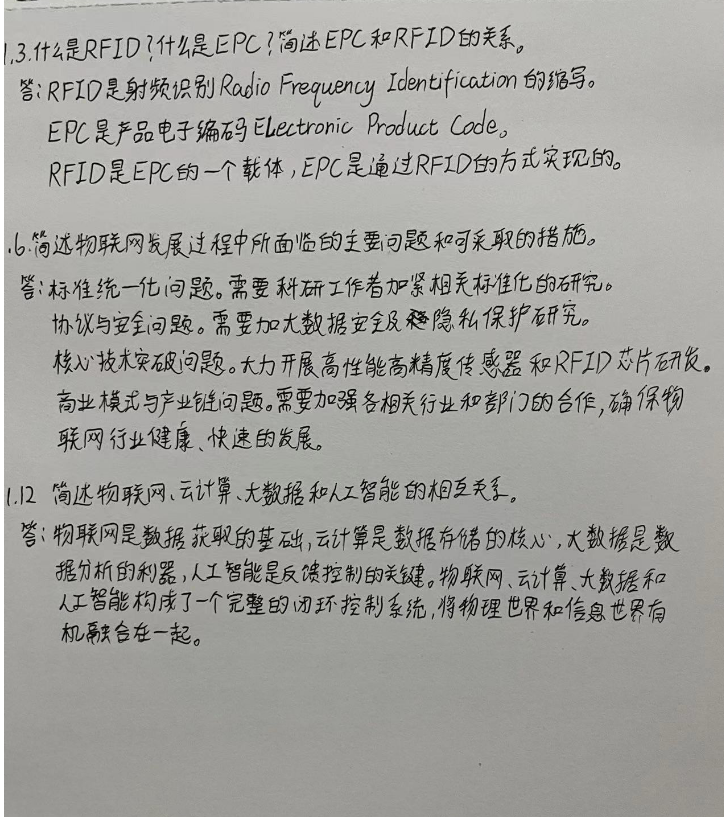 1.3.什么是RFID?什么是EPC?简述EPC和RFID的关系。
答:RFID是射频识别Radio Frequency Identification的缩写。
EPC是产品电子编码ELectronic Product Code。
RFID是EPC的一个载体,EPC是通过RFID的方式实现的。
.6.简述物联网发展过程中所面临的主要问题和可采取的措施。
答:标准统一化问题。需要科研工作者加紧相关标准化的研究。
协议与安全问题。需要加大数据安全及隐私保护研究。
核心技术突破问题。大力开展高性能高精度传感器和RFID芯片研发。
商业模式与产业链问题。需要加强各相关行业和部门的合作,确保物
联网行业健康、快速的发展。
1.12 简述物联网、云计算、大数据和人工智能的相互关系。
答:物联网是数据获取的基础,云计算是数据存储的核心,大数据是数
据分析的利器,人工智能是反馈控制的关键。物联网、云计算、大数据和
人工智能构成了一个完整的闭环控制系统,将物理世界和信息世界有
机融合在一起。